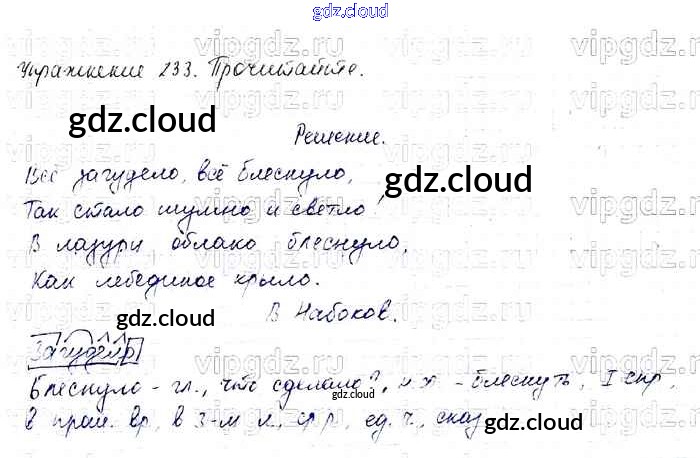 gdz.cloud
Упражнение 233. Прочитайте.
gdz.cloud
Решение.
Всё загудело, всё блеснуло,
gdz.cloud
Так стало шумно и светло!
В лазури облако блеснуло,
Как лебединое крыло.
В Набоков.
gdz.cloud
Загудело
Блеснуло - гл., что сделало?, н.ф. - блеснуть, I спр,
gdz.cloud
в прош. вр, в 3-м л, ср р, ед. ч, сказ
gdz.cloud